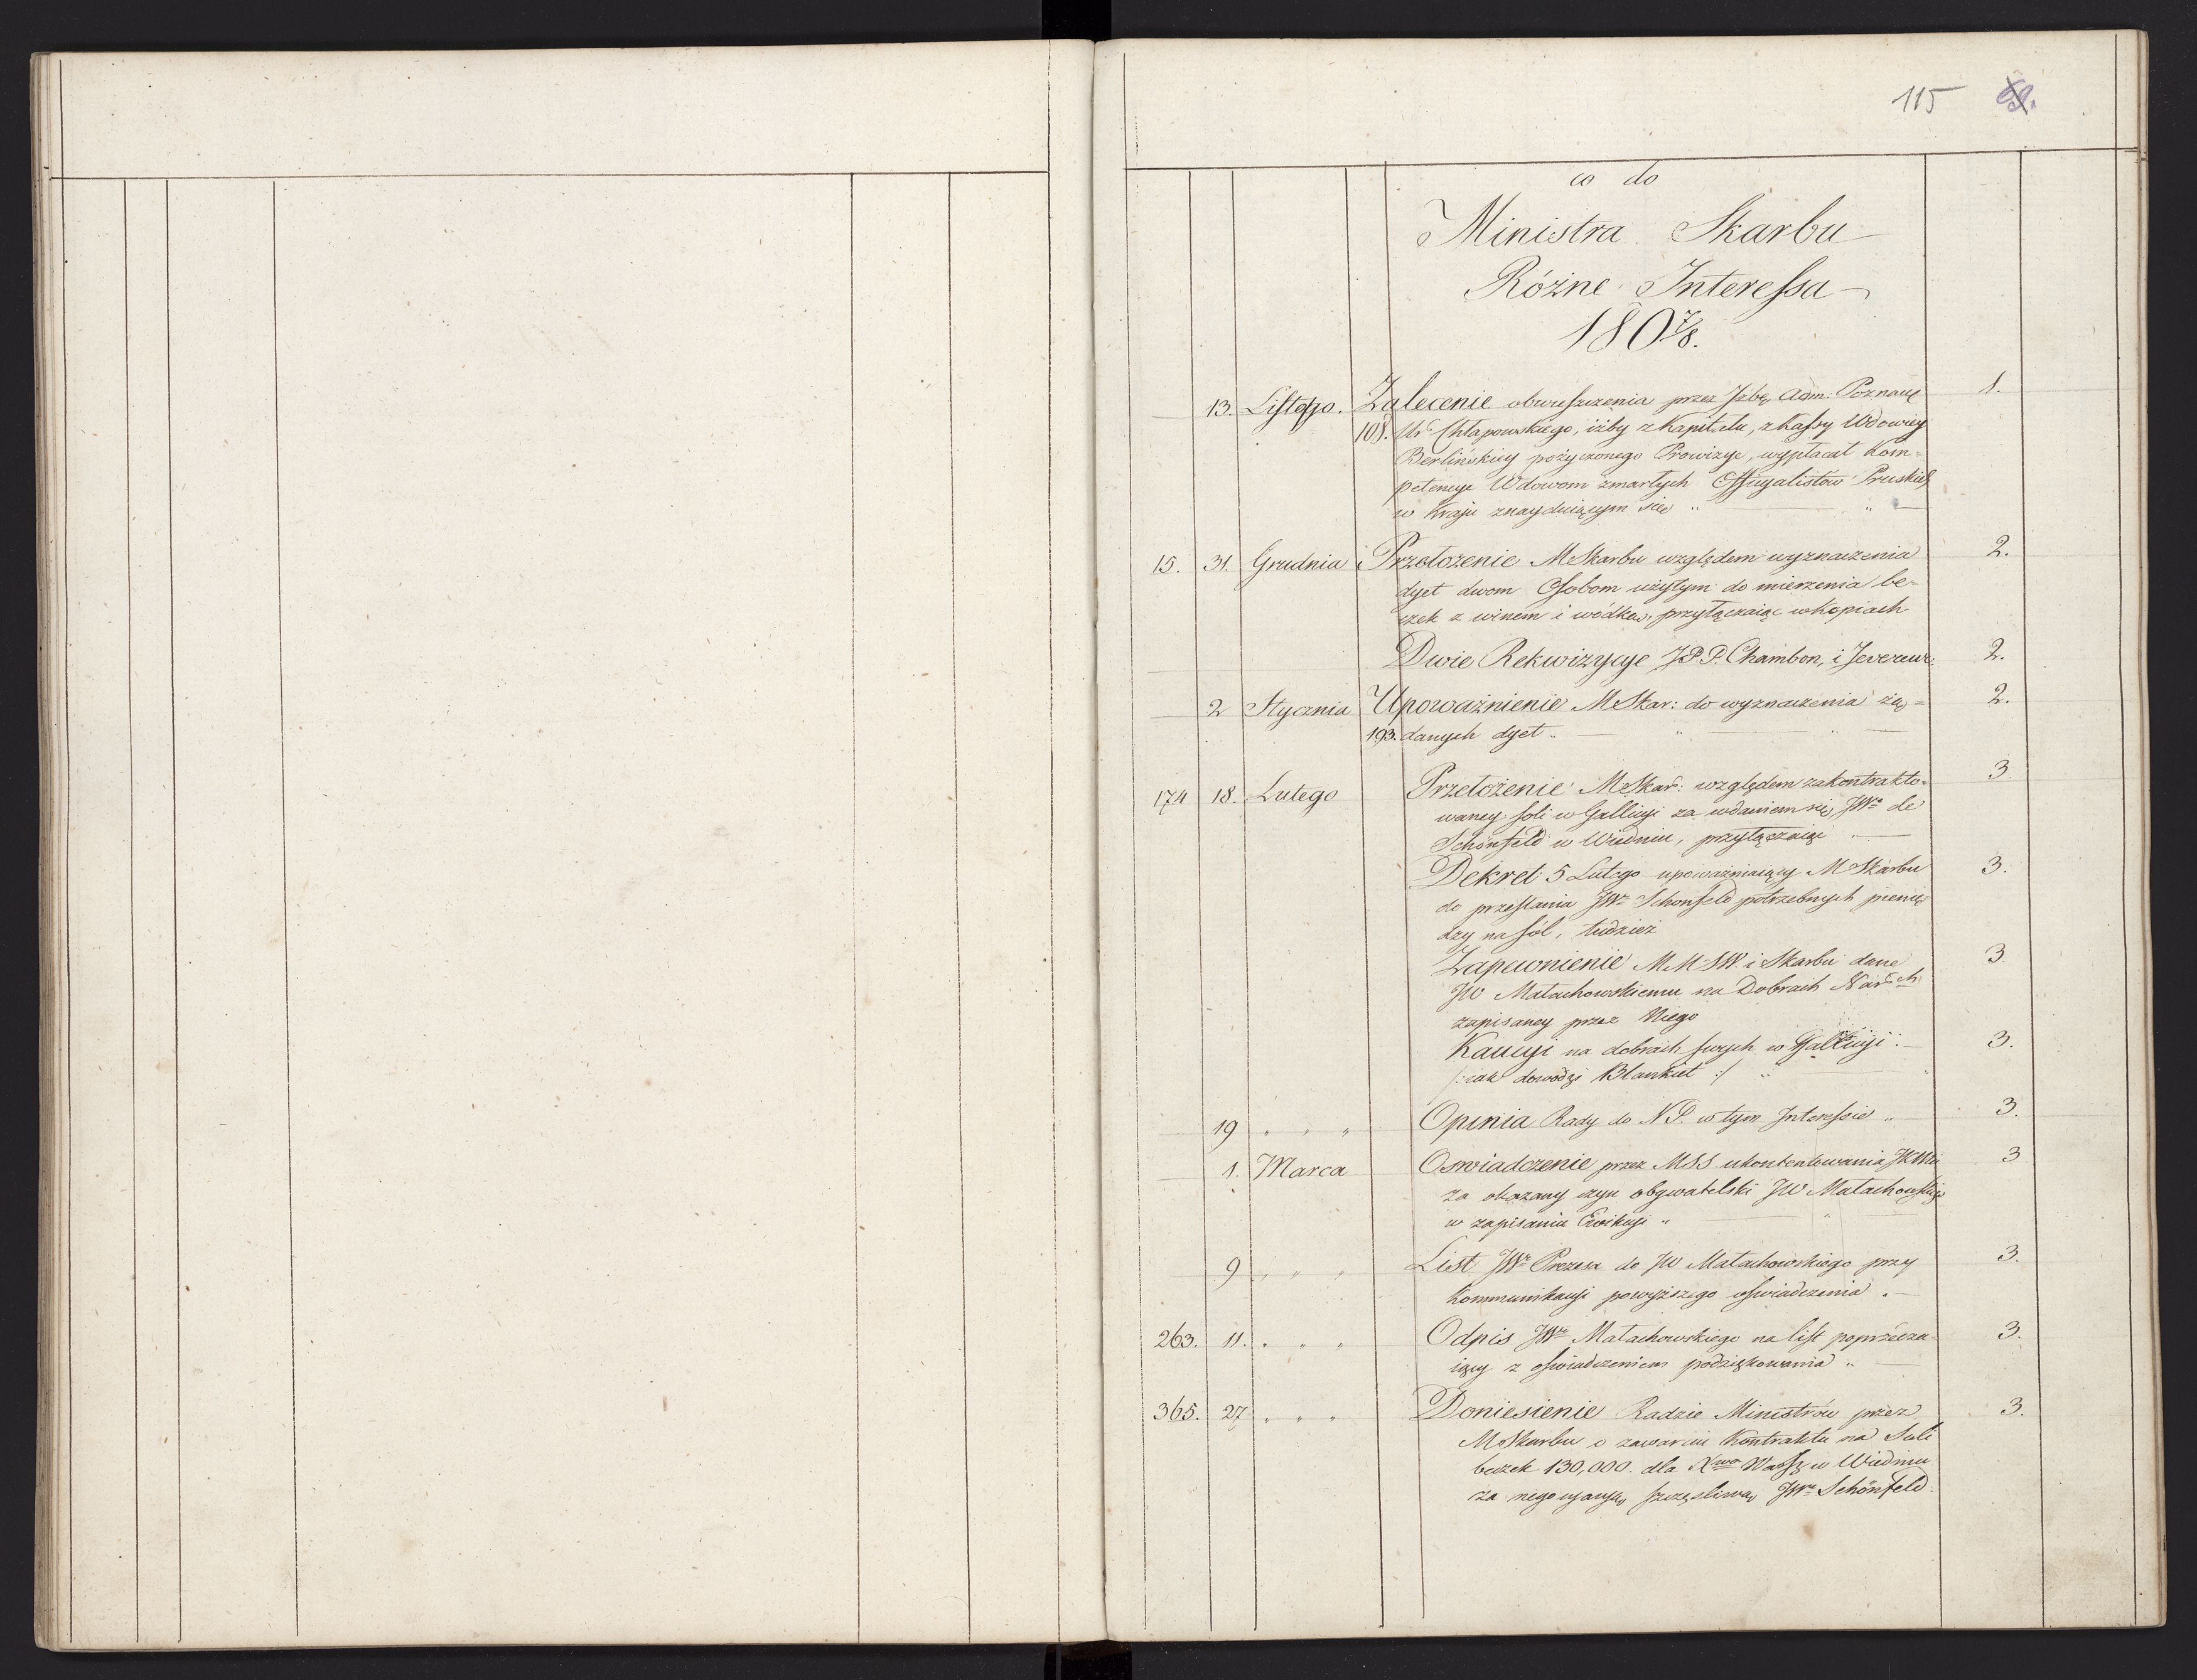 115
co do
Ministra Skarbu
Różne Interessa
180 7/8.
13. Listopa. Zalecenie obwieszczenia przez Izbę Adm: Poznańs 1.
108. Ur Chłapowskiego, iżby z Kapitału, z Kassy Wdowiey
Berlińskiey pożyczonego Prowizye, wypłacał Kom=
petencye Wdowom zmarłych Officyalistów Pruskich
w Kraju znayduiącym się „ „
15. 31. Grudnia Przełożenie MSkarbu względem wyznaczenia 2.
dyet dwom Osobom użytym do mierzenia be=
czek z winem i wódką, przyłączaiąc w kopiach
Dwie Rekwizycye JPP. Chambon, i 2.
2 Stycznia Upoważnienie MSkar: do wyznaczenia żą= 2.
193. danych dyet „ „ „
174 18. Lutego Przełożenie MSkar: względem zakontrakto= 3
waney soli w Gallicyi za wdaniem się JWo de
Schönfeld w Wiedniu, przyłączaiąc
Dekret 5 Lutego upoważniaiący MSkarbu 3.
do przesłania JWo Schonfeld potrzebnych pienię
dzy na sól, tudzież
Zapewnienie MMSW. i Skarbu dane 3.
JW Małachowskiemu na Dobrach Nardch
zapisaney przez Niego
Kaucyi na dobrach swych w Gallicyi. 3.
/: iak dowodzi Blankiet :/ „
19 „ „ „ Opinia Rady do NP. w tym Interessie „ 3.
1. Marca Oswiadczenie przez MSS ukontentowania JKMci 3
za okazany czyn obywatelski JW Małachowskie
w zapisaniu Ewikcyi „ „
9 „ „ „ List JWo Prezesa do JW Małachowskiego przy 3.
Kommunikacyi powyższego oświadczenia „
263. 11. „ „ „ Odpis JWo Małachowskiego na list poprzedza 3.
iący z oświadczeniem podziękowania „
365. 27 „ „ „ Doniesienie Radzie Ministrów przez 3.
MSkarbu o zawarciu Kontraktu na Soli
beczek 130,000. dla Xwa Warsz w Wiedniu
za negocyacyą szczęśliwą JWo Schönfeld